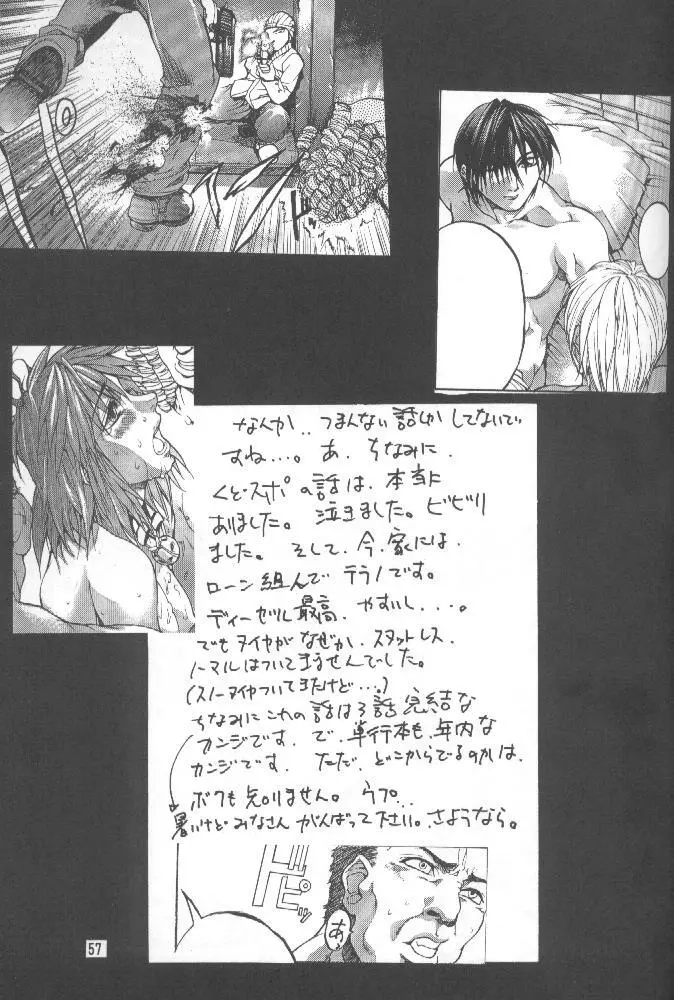 なんか‥つまんない話しか してないで
すね…。あ、ちなみに、
くど・スポの話は、本当に
ありました。泣きました。ビビリ
ました。そして、今、家には、
ローン組んで テラノです。
ディーゼル最高、やすいし...。
でもタイヤがなぜか、スタットレス、
ノーマルはついてきませんでした。
(スノータイヤついてきたけど…。)
ちなみにこれの話は3話完結な
カンジです、で、単行本も、年内な
カンジです、ただ、どこからでるのかは、
ボクも知りません。ウプ...
暑いけど みなさん がんばって下さい。さようなら。
ピッ
あ
57